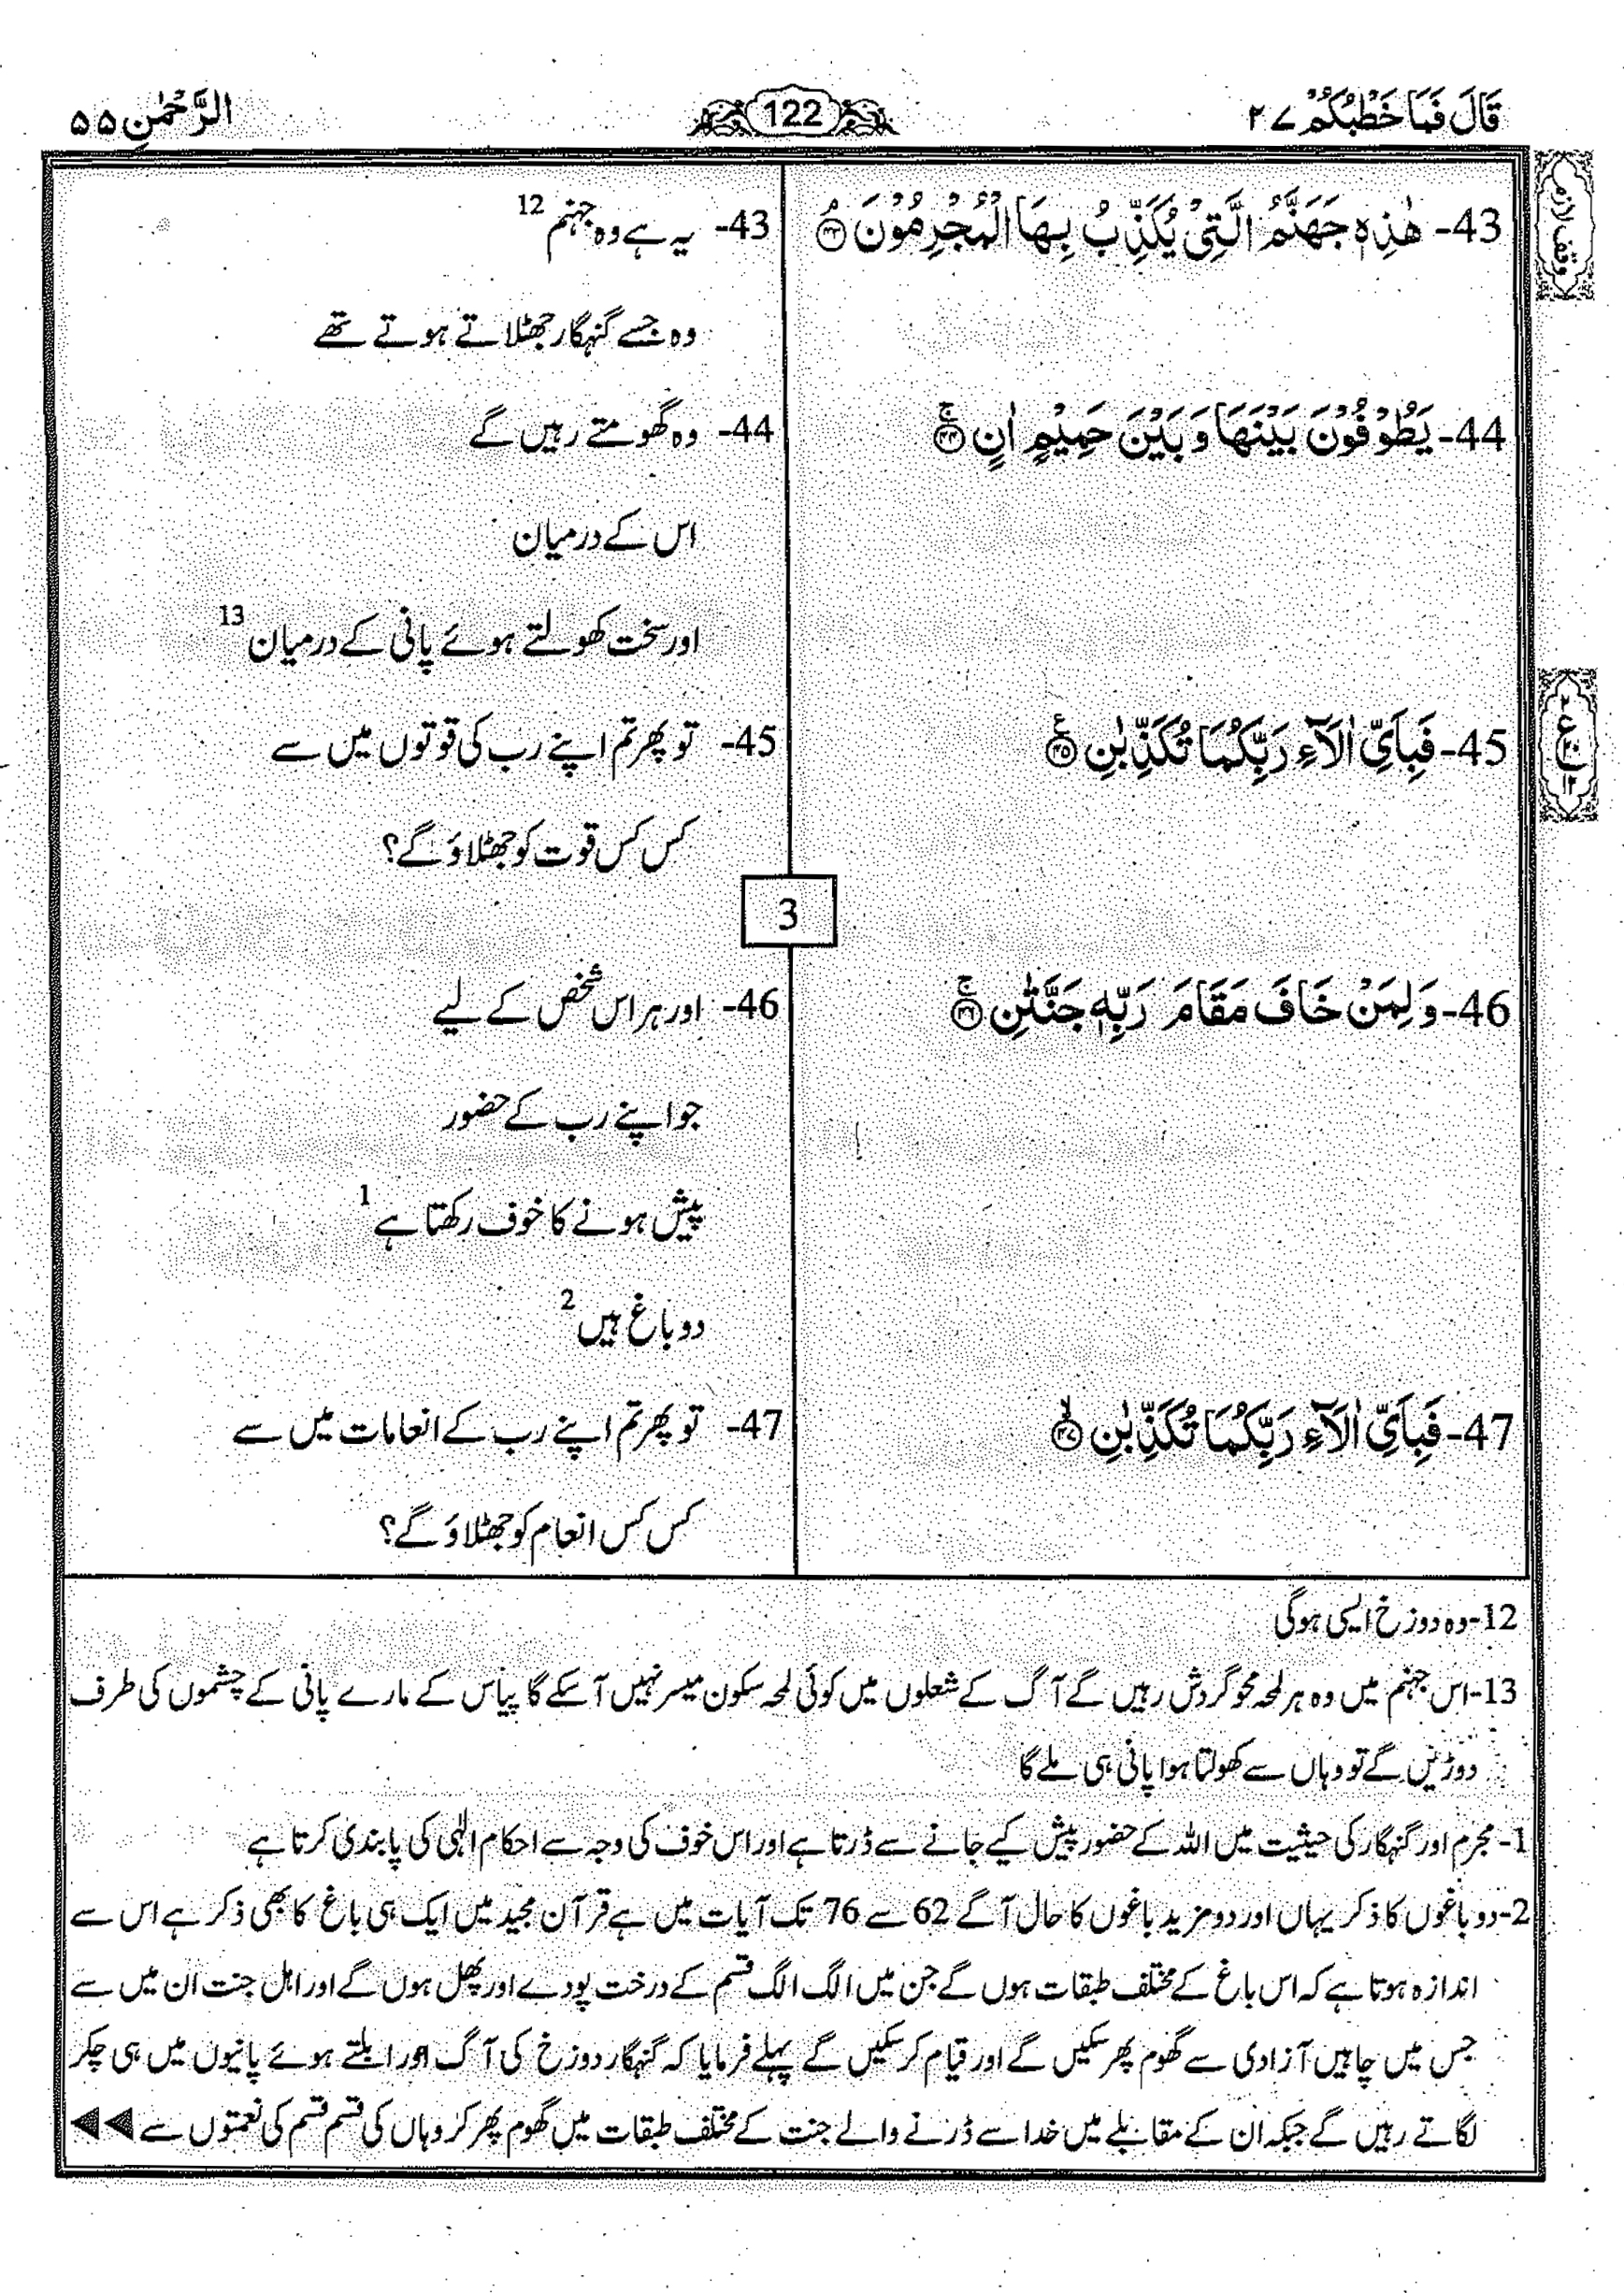 قَالَ فَمَا خَطْبُكُمْ ۲۷
122
الرَّحْمٰنِ ۵۵
وقف لازم
43- هٰذِهٖ جَهَنَّمُ الَّتِیْ یُكَذِّبُ بِهَا الْمُجْرِمُوْنَ ۘ۝۴۳
43- یہ ہے وہ جہنم 12
وہ جسے گنہگار جھٹلاتے ہوتے تھے
44- یَطُوْفُوْنَ بَیْنَهَا وَ بَیْنَ حَمِیْمٍ اٰنٍ ۚ۝۴۴
44- وہ گھومتے رہیں گے
اس کے درمیان
اور سخت کھولتے ہوئے پانی کے درمیان 13
45- فَبِاَیِّ اٰلَآءِ رَبِّكُمَا تُكَذِّبٰنِ ۠۝۴۵
45- تو پھر تم اپنے رب کی قوتوں میں سے
کس کس قوت کو جھٹلاؤ گے؟
3
46- وَ لِمَنْ خَافَ مَقَامَ رَبِّهٖ جَنَّتٰنِ ۚ۝۴۶
46- اور ہر اس شخص کے لیے
جو اپنے رب کے حضور
پیش ہونے کا خوف رکھتا ہے 1
دو باغ ہیں 2
47- فَبِاَیِّ اٰلَآءِ رَبِّكُمَا تُكَذِّبٰنِ ۙ۝۴۷
47- تو پھر تم اپنے رب کے انعامات میں سے
کس کس انعام کو جھٹلاؤ گے؟
12- وہ دوزخ ایسی ہوگی
13- اس جہنم میں وہ ہر لمحہ محو گردش رہیں گے آگ کے شعلوں میں کوئی لمحہ سکون میسر نہیں آ سکے گا پیاس کے مارے پانی کے چشموں کی طرف
دوڑیں گے تو وہاں سے کھولتا ہوا پانی ہی ملے گا
1- مجرم اور گنہگار کی حیثیت میں اللہ کے حضور پیش کیے جانے سے ڈرتا ہے اور اس خوف کی وجہ سے احکام الٰہی کی پابندی کرتا ہے
2- دو باغوں کا ذکر یہاں اور دو مزید باغوں کا حال آگے 62 سے 76 تک آیات میں ہے قرآن مجید میں ایک ہی باغ کا بھی ذکر ہے اس سے
اندازہ ہوتا ہے کہ اس باغ کے مختلف طبقات ہوں گے جن میں الگ الگ قسم کے درخت پودے اور پھل ہوں گے اور اہل جنت ان میں سے
جس میں چاہیں آزادی سے گھوم پھر سکیں گے اور قیام کر سکیں گے پہلے فرمایا کہ گنہگار دوزخ کی آگ اور ابلتے ہوئے پانیوں میں ہی چکر
لگاتے رہیں گے جبکہ ان کے مقابلے میں خدا سے ڈرنے والے جنت کے مختلف طبقات میں گھوم پھر کر وہاں کی قسم قسم کی نعمتوں سے ◀◀